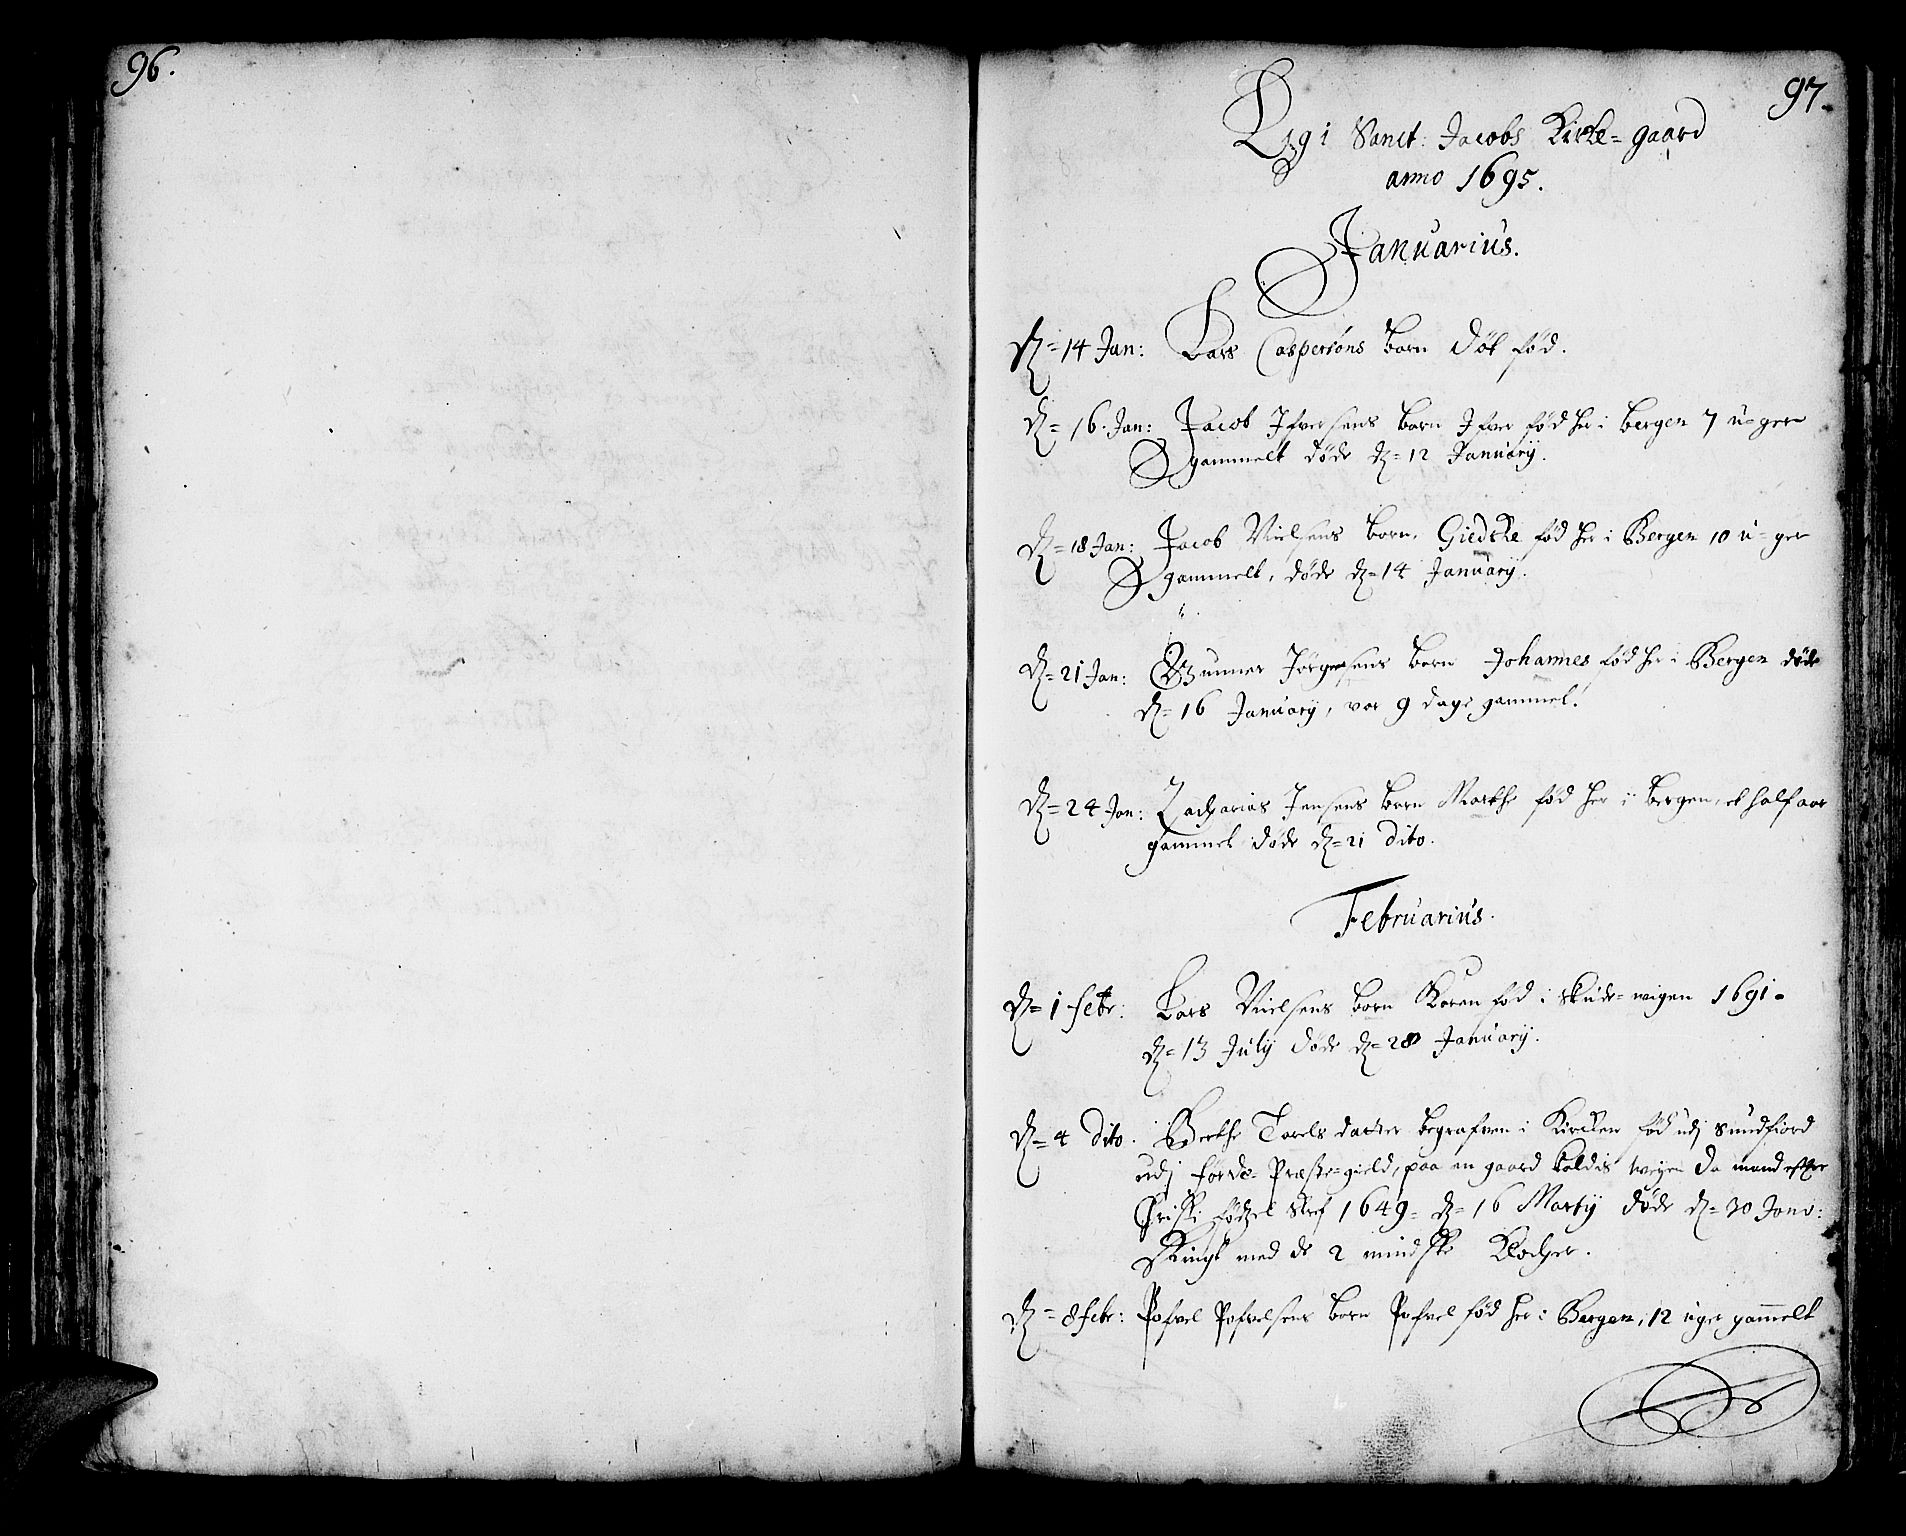 96.
97.
Lig i Sanct: Jacobs Kirke=gaard
anno 1695.
Januarius.
d= 14 Jan: Lars Caspersøns Barn død fød.
d= 16. Jan: Jacob Ifversens Barn Ifver fød her i Bergen 7 u=ger
gammelt døde d= 12 January.
d= 18 Jan: Jacob Nielsens Barn, Giedske fød her i Bergen 10 u=ger
gammelt, døde d= 14 January.
d= 21 Jan: Gunner Jørgensens Barn Johannes fød her i Bergen døde
d= 16 January, var 9 dage gammel.
d= 24 Jan: Zacharias Jensens Barn Marthe fød her i Bergen, et half aar
gammel døde d= 21 dito.
Februarius.
d= 1 febr: Lars Nielsens Barn Karen fød i Skude=wigen 1691=
d= 13 July døde d= 28 January.
d= 4 dito. Berthe Tarels datter begrafven i Kircken fød udj Sundfiord
udj Førde= Præste=gield, paa en gaard kaldis da mand efter
Christi fødzel skref 1649= d= 16 Marty døde d= 30 Janv:
Ringt med de 2 mindste Klocher.
d= 8 febr: Pofvel Pofvelsens Barn Pofvel fød her i Bergen, 12 uger gam̄elt